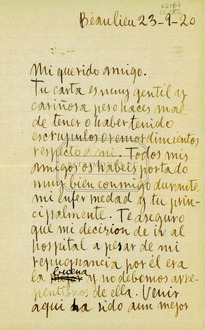 Beaulieu 23-9-20
Mi querido amigo.
Tu carta es muy gentil y
cariñosa pero haces mal
de tener o haber tenido
escrupulos o remordimientos
respecto a mi. Todos mis
amigos os habeis portado
muy bien conmigo durante
mi enfermedad y tu prin-
cipalmente. Te aseguro
que mi decision de ir al
hospital a pesar de mi
repugnancia por él era
la buena y no debemos arre-
pentirnos de ella. Venir
aqui ha sido aun mejor